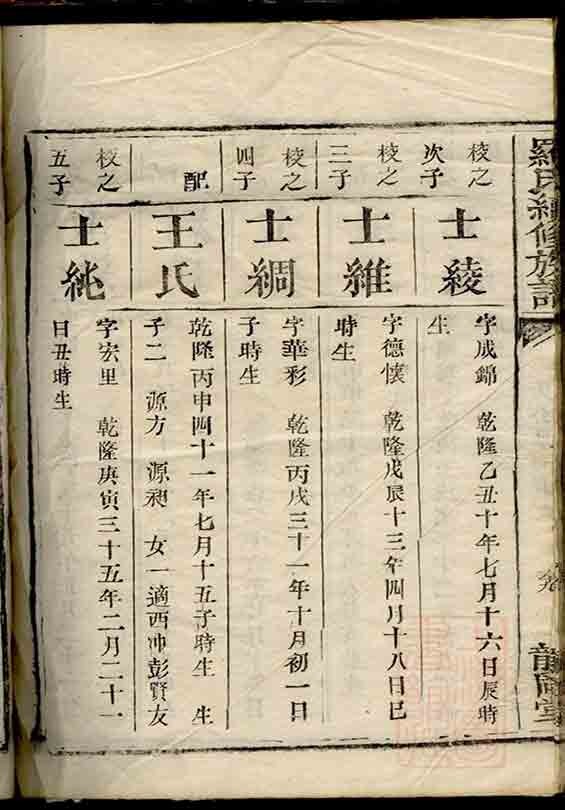 羅氏續修族譜
校之
次子
士綾
字成錦 乾隆乙丑十年七月十六日辰時
生
校之
三子
士維
字德懷 乾隆戊辰十三年四月十八日巳
時生
校之
四子
士綢
字華彩 乾隆丙戌三十一年十月初一日
子時生
配
王氏
乾隆丙申四十一年七月十五子時生 生
子二 源方 源昶 女一適西冲彭賢友
校之
五子
士純
字宏里 乾隆庚寅三十五年二月二十一
日丑時生